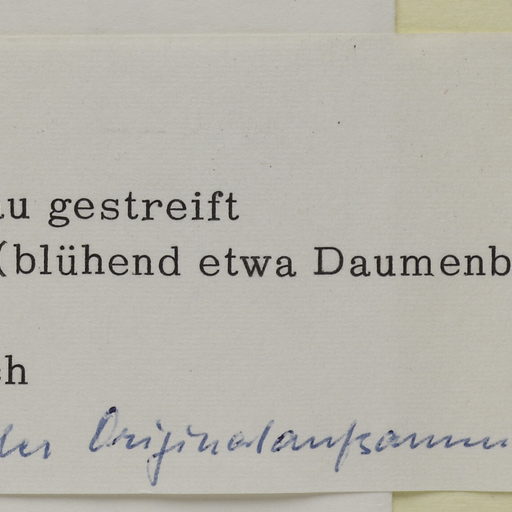 au gestreift
(blühend etwa Daumenb
ch
der Originalaufsamm